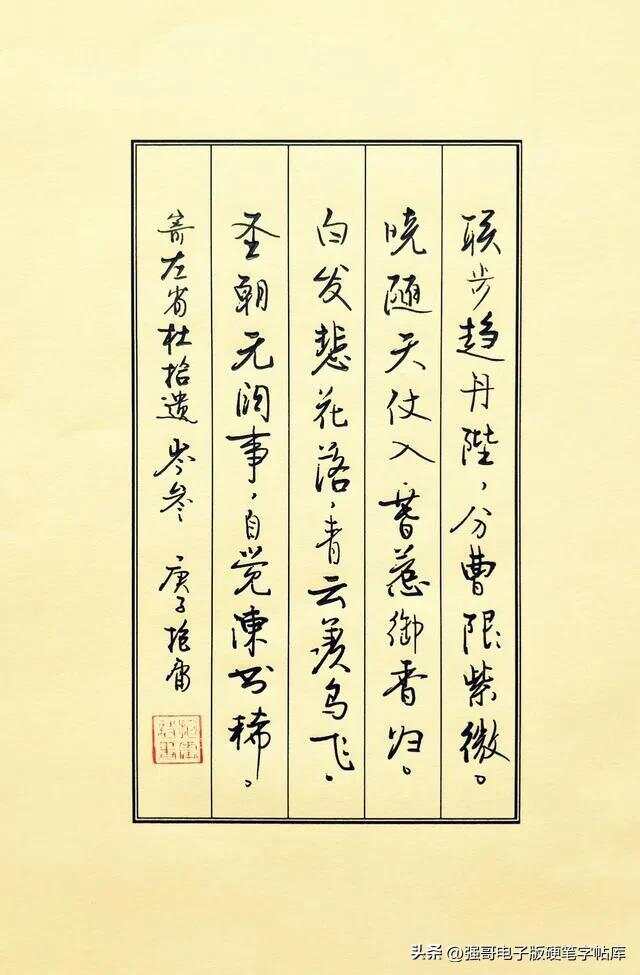 联步趋丹陛，分曹限紫微。
晓随天仗入，暮惹御香归。
白发悲花落，青云羡鸟飞。
圣朝无阙事，自觉谏书稀。
寄左省杜拾遗 岑参 庚子
头条 @强哥电子版硬笔字帖库